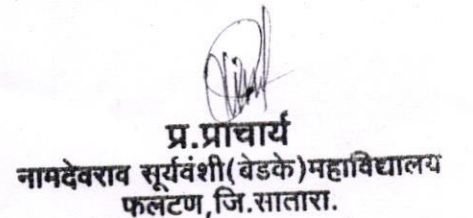 प्र.प्राचार्य
नामदेवराव सूर्यवंशी(बेडके)महाविद्यालय
फलटण,जि.सातारा.